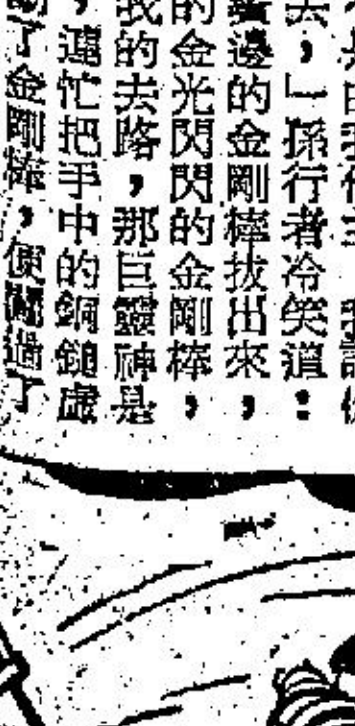 去，」孫行者冷笑道：
邊的金剛棒拔出來，
的金光閃閃的金剛棒，
我的去路，那巨靈神是
，連忙把手中的銅鎚虛
了金剛棒，便翻過了